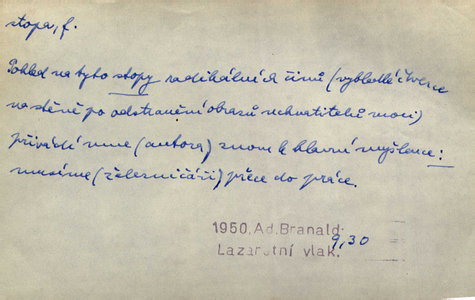 stopa, f.
Pohled na tyto stopy radikálních činů (vybledlé čtverce
na stěně po odstranění obrazů uchvatitelů moci)
přivádí mne (autora) znovu k hlavní myšlence:
musíme (železničáři) přece do práce.
1950, Ad. Branald:
Lazaretní vlak.
9,30